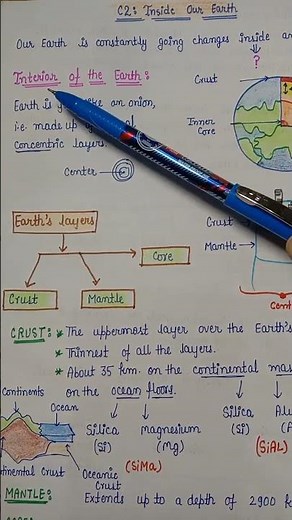 C2: Inside Our Earth
Our Earth is constantly going changes inside
?
Interior of the Earth:
Crust
Earth is an onion,
i.e. made up
concentric layers
Inner
Core
Center
Earth's layers
Core
Crust
Mantle
Crust
Mantle
Cent
CRUST: * The uppermost layer over the Earth's
* Thinnest of all the layers.
* About 35 km. on the continental mas
on the ocean floors.
Continents
Ocean
Silica
(Si)
Magnesium
(Mg)
Silica
(Si)
Alu
(SiMa)
(SiAL)
ntinental Crust
Oceanic
Crust
MANTLE:
Extends up to a depth of 2900